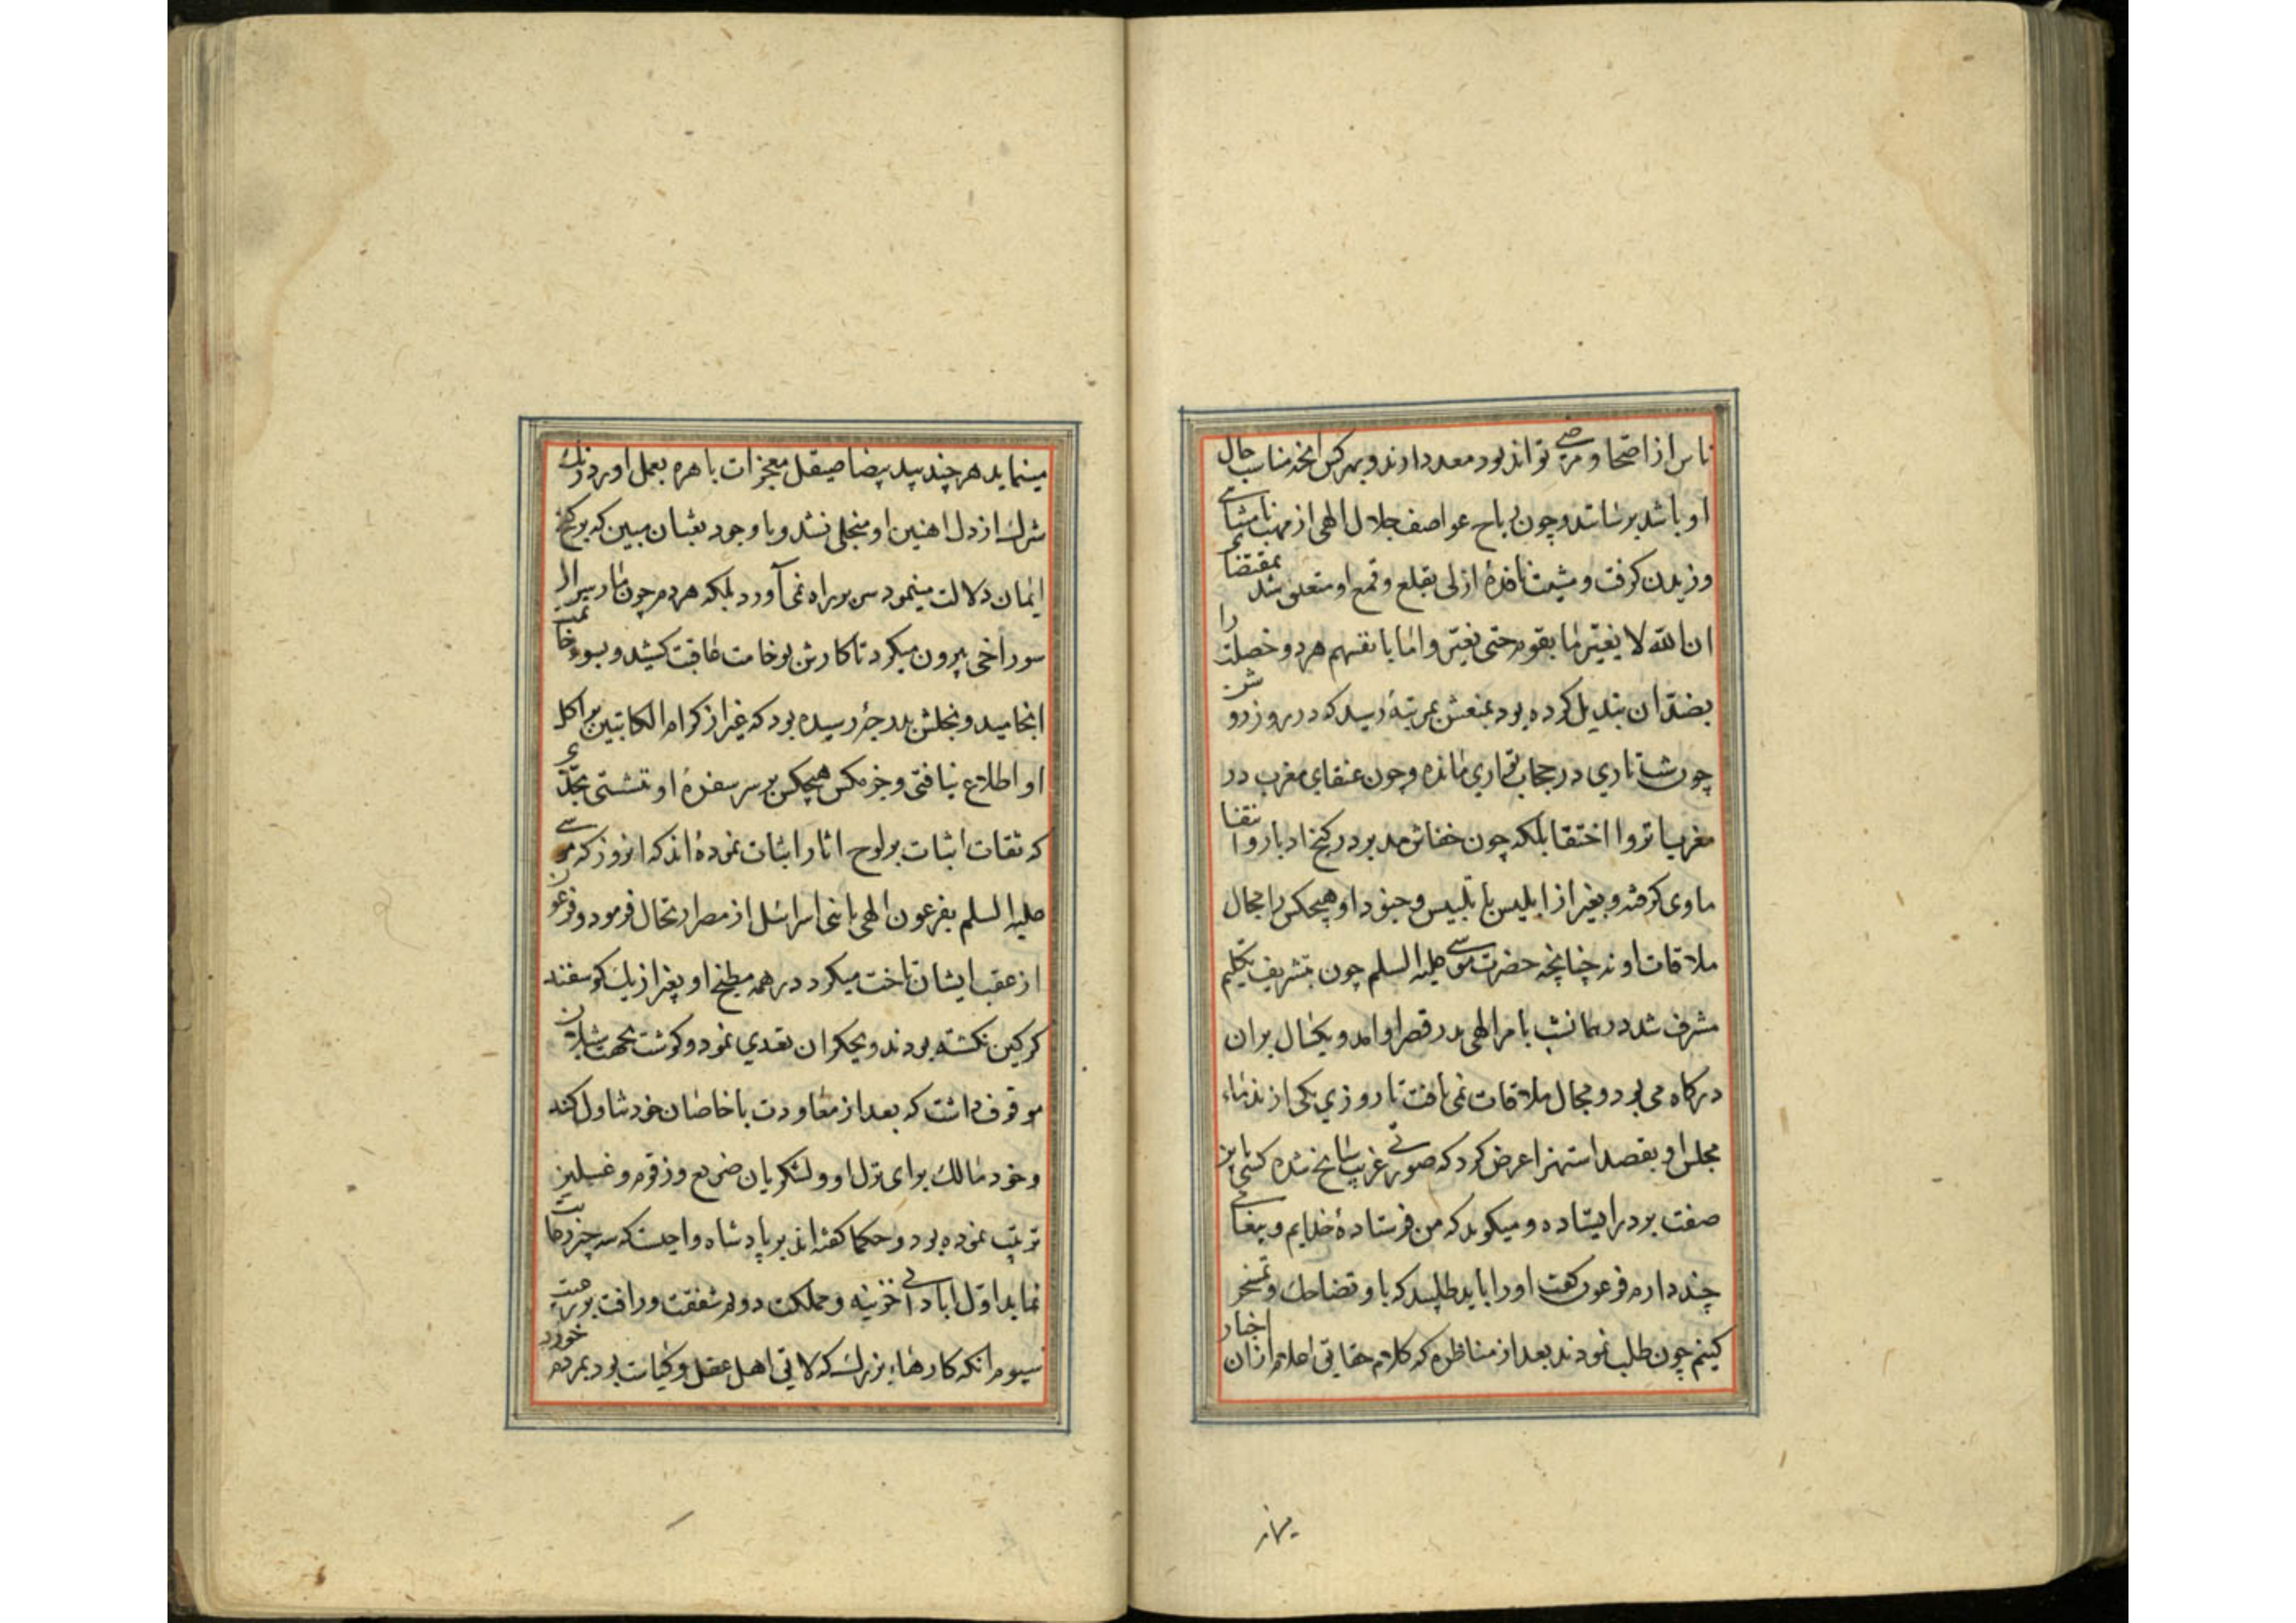 ناس از اصحا و مرضی تواند بود معد دارند و بهر کس آنچه مناسب حال
او باشد برسانند و چون ریاح عواصف جلال الهی از مهب نامتناهی
وزیدن کرفت و مشیت نافذهٔ ازلی بقلع و قمع او متعلق شد بمقتضاء
ان الله لا یغیر ما بقوم حتی یغیروا ما بانفسهم هر دو خصلت را
بضد آن تبدیل کرده بود بمنعش بمرتبهٔ رسید که در روز روشن
چون شب تاری در حجاب تواری مانده و چون عنقای مغرب در
مغرب انزوا اختفا بلکه چون خفاش مدبر در کنج ادبار و انتفا
ماوی کرفته و بغیر از ابلیس با تلبیس و جنود او هیچکس را مجال
ملاقات او نه چنانچه حضرت موسی علیه السلم چون بتشریف تکلیم
مشرف شد در همانشب بامر الهی بدر قصر او امد و یکسال بران
درکاه می بود و مجال ملاقات نمی یافت تا روزی یکی از ندماء
مجلس او بقصد استهزا عرض کرد که صورتی غریب سانح شده کسی باین
صفت بر در ایستاده و میکوید که من فرستادهٔ خدایم و پیغامی
چند دارم فرعون کفت او را باید طلبید که با او تضاحک و تمسخر
کنیم چون طلب نمودند بعد از مناظره که کلام حقایق اعلام از ان اخبار
مینماید هر چند بید بیضا صیقل معجزات باهره بعمل اورد زنک
شرک از دل اهنین او منجلی نشد و با وجود ثعبان مبین که بر کنج
ایمان دلالت مینمود سر براه نمی آورد بلکه هر دم چون مار سر از
سوراخی بیرون میکرد تا کارش بوخامت عاقبت کشید و بسوء خاتمت
انجامید و بخلش بدرجهٔ رسیده بود که غیر از کرام الکاتبین بر اکل
او اطلاع نیافتی و جز مکس هیچکس بر سر سفرهٔ او ننشستی بحدی
که ثقات اثبات بر لوح اثار اثبات نموده اند که انروز که موسی
علیه السلم بفرمون الهی با بنی اسرائیل از مصر ارتحال فرمود و فرعون
از عقب ایشان تاخت میکرد در همه مطبخ او بغیر از یک کوسفند
کرکین نکشته بودند و بجکر ان تغدی نمود و کوشت بجهت شیلان
موقوف داشت که بعد از معاودت با خاصان خود تناول کند
و خود مالک برای نزل او و لشکریان ضریع و زقوم و غسلین
ترتیب نموده بود و حکما کفته اند بر پادشاه واجبست که سه چیز رعایت
نماید اول ابادانی خزینه و مملکت دوم شفقت و رافت بر رعیت
سیوم انکه کارهاء بزرک که لایق اهل عقل و کیاست بود بمردم خورد